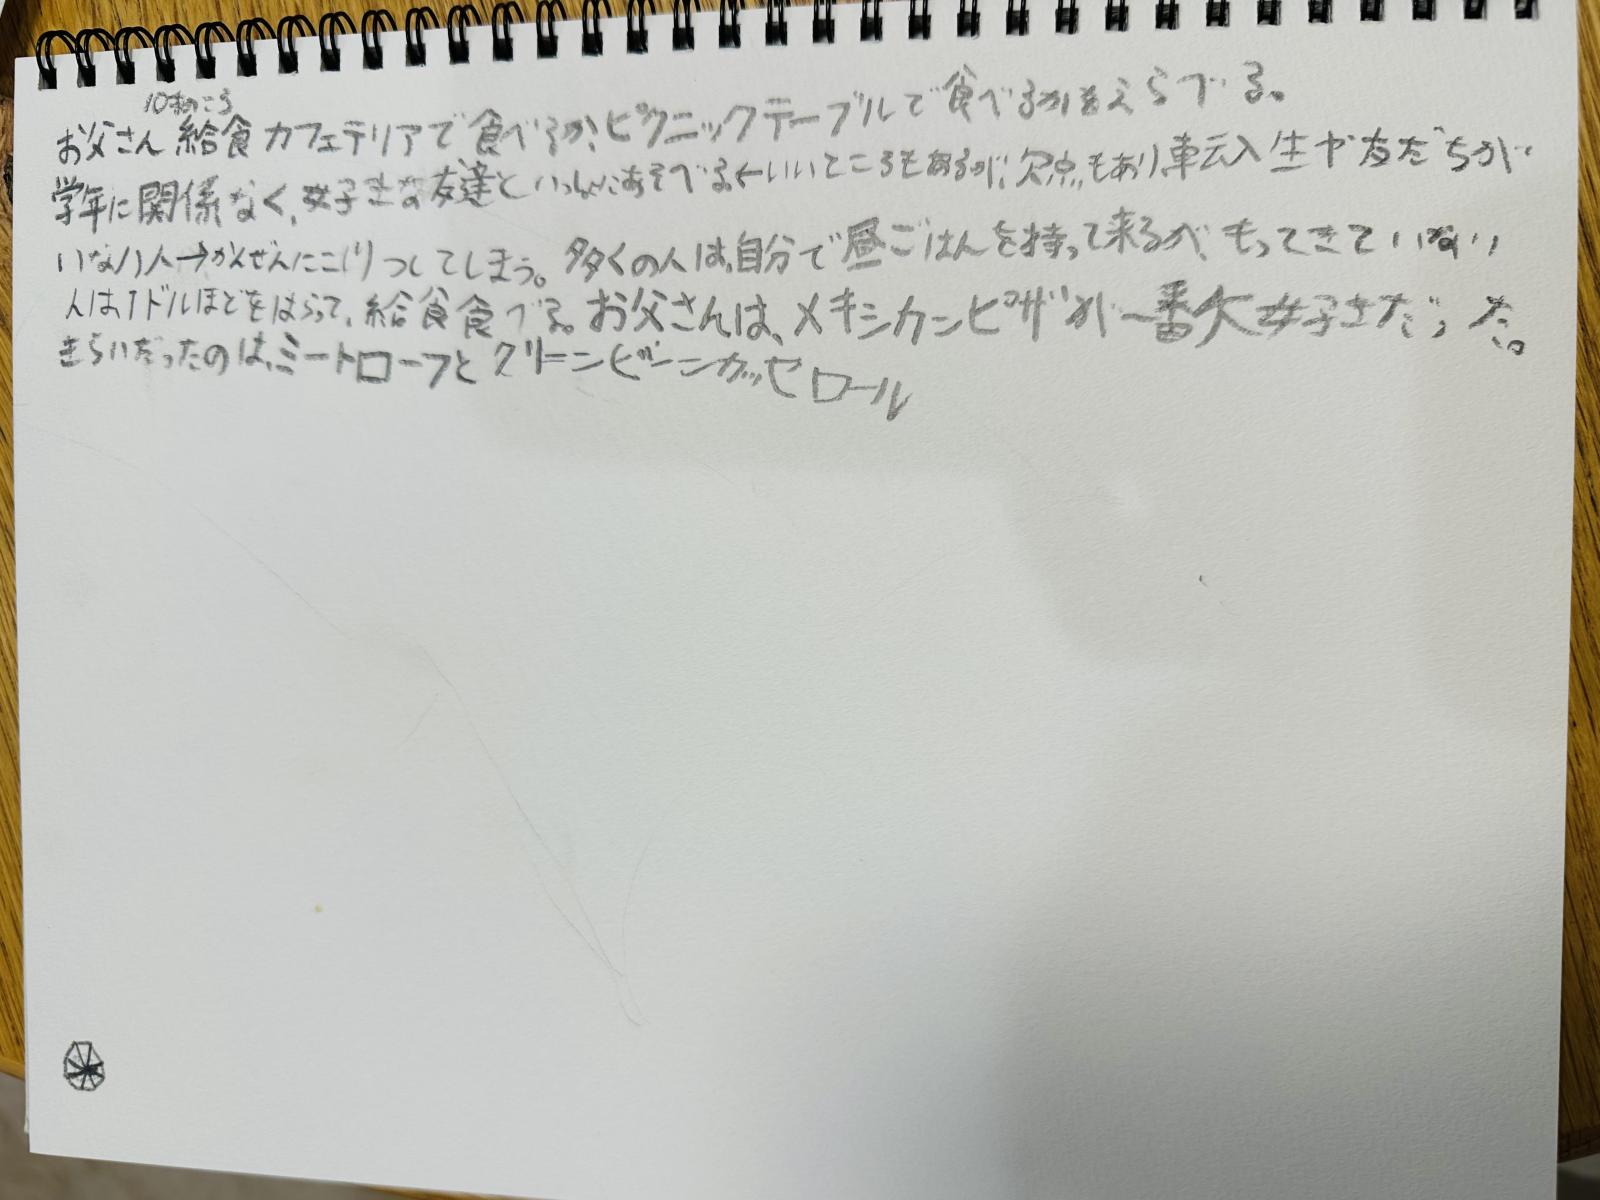 10才のころ
お父さん 給食 カフェテリアで食べるか、ピクニックテーブルで食べるかをえらべる。
学年に関係なく、好きな友達といっしょにあそべる←いいところもあるが、欠点もあり転入生や友だちが
いない人→かんぜんにこりつしてしまう。多くの人は、自分で昼ごはんを持って来るが、もってきていない
人は、1ドルほどをはらって、給食食べる。お父さんは、メキシカンピザが一番大好きだった。
きらいだったのは、ミートローフとグリーンビーンカッセロール